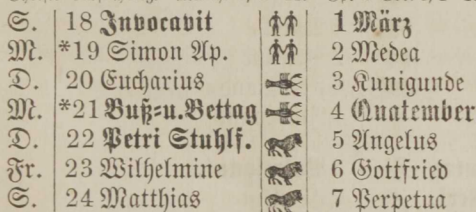 S. 18 Invocavit 1 März
M. *19 Simon Ap. 2 Medea
D. 20 Eucharius 3 Kunigunde
M. *21 Buß=u. Bettag 4 Quatember
D. 22 Petri Stuhlf. 5 Angelus
Fr. 23 Wilhelmine 6 Gottfried
S. 24 Matthias 7 Perpetua